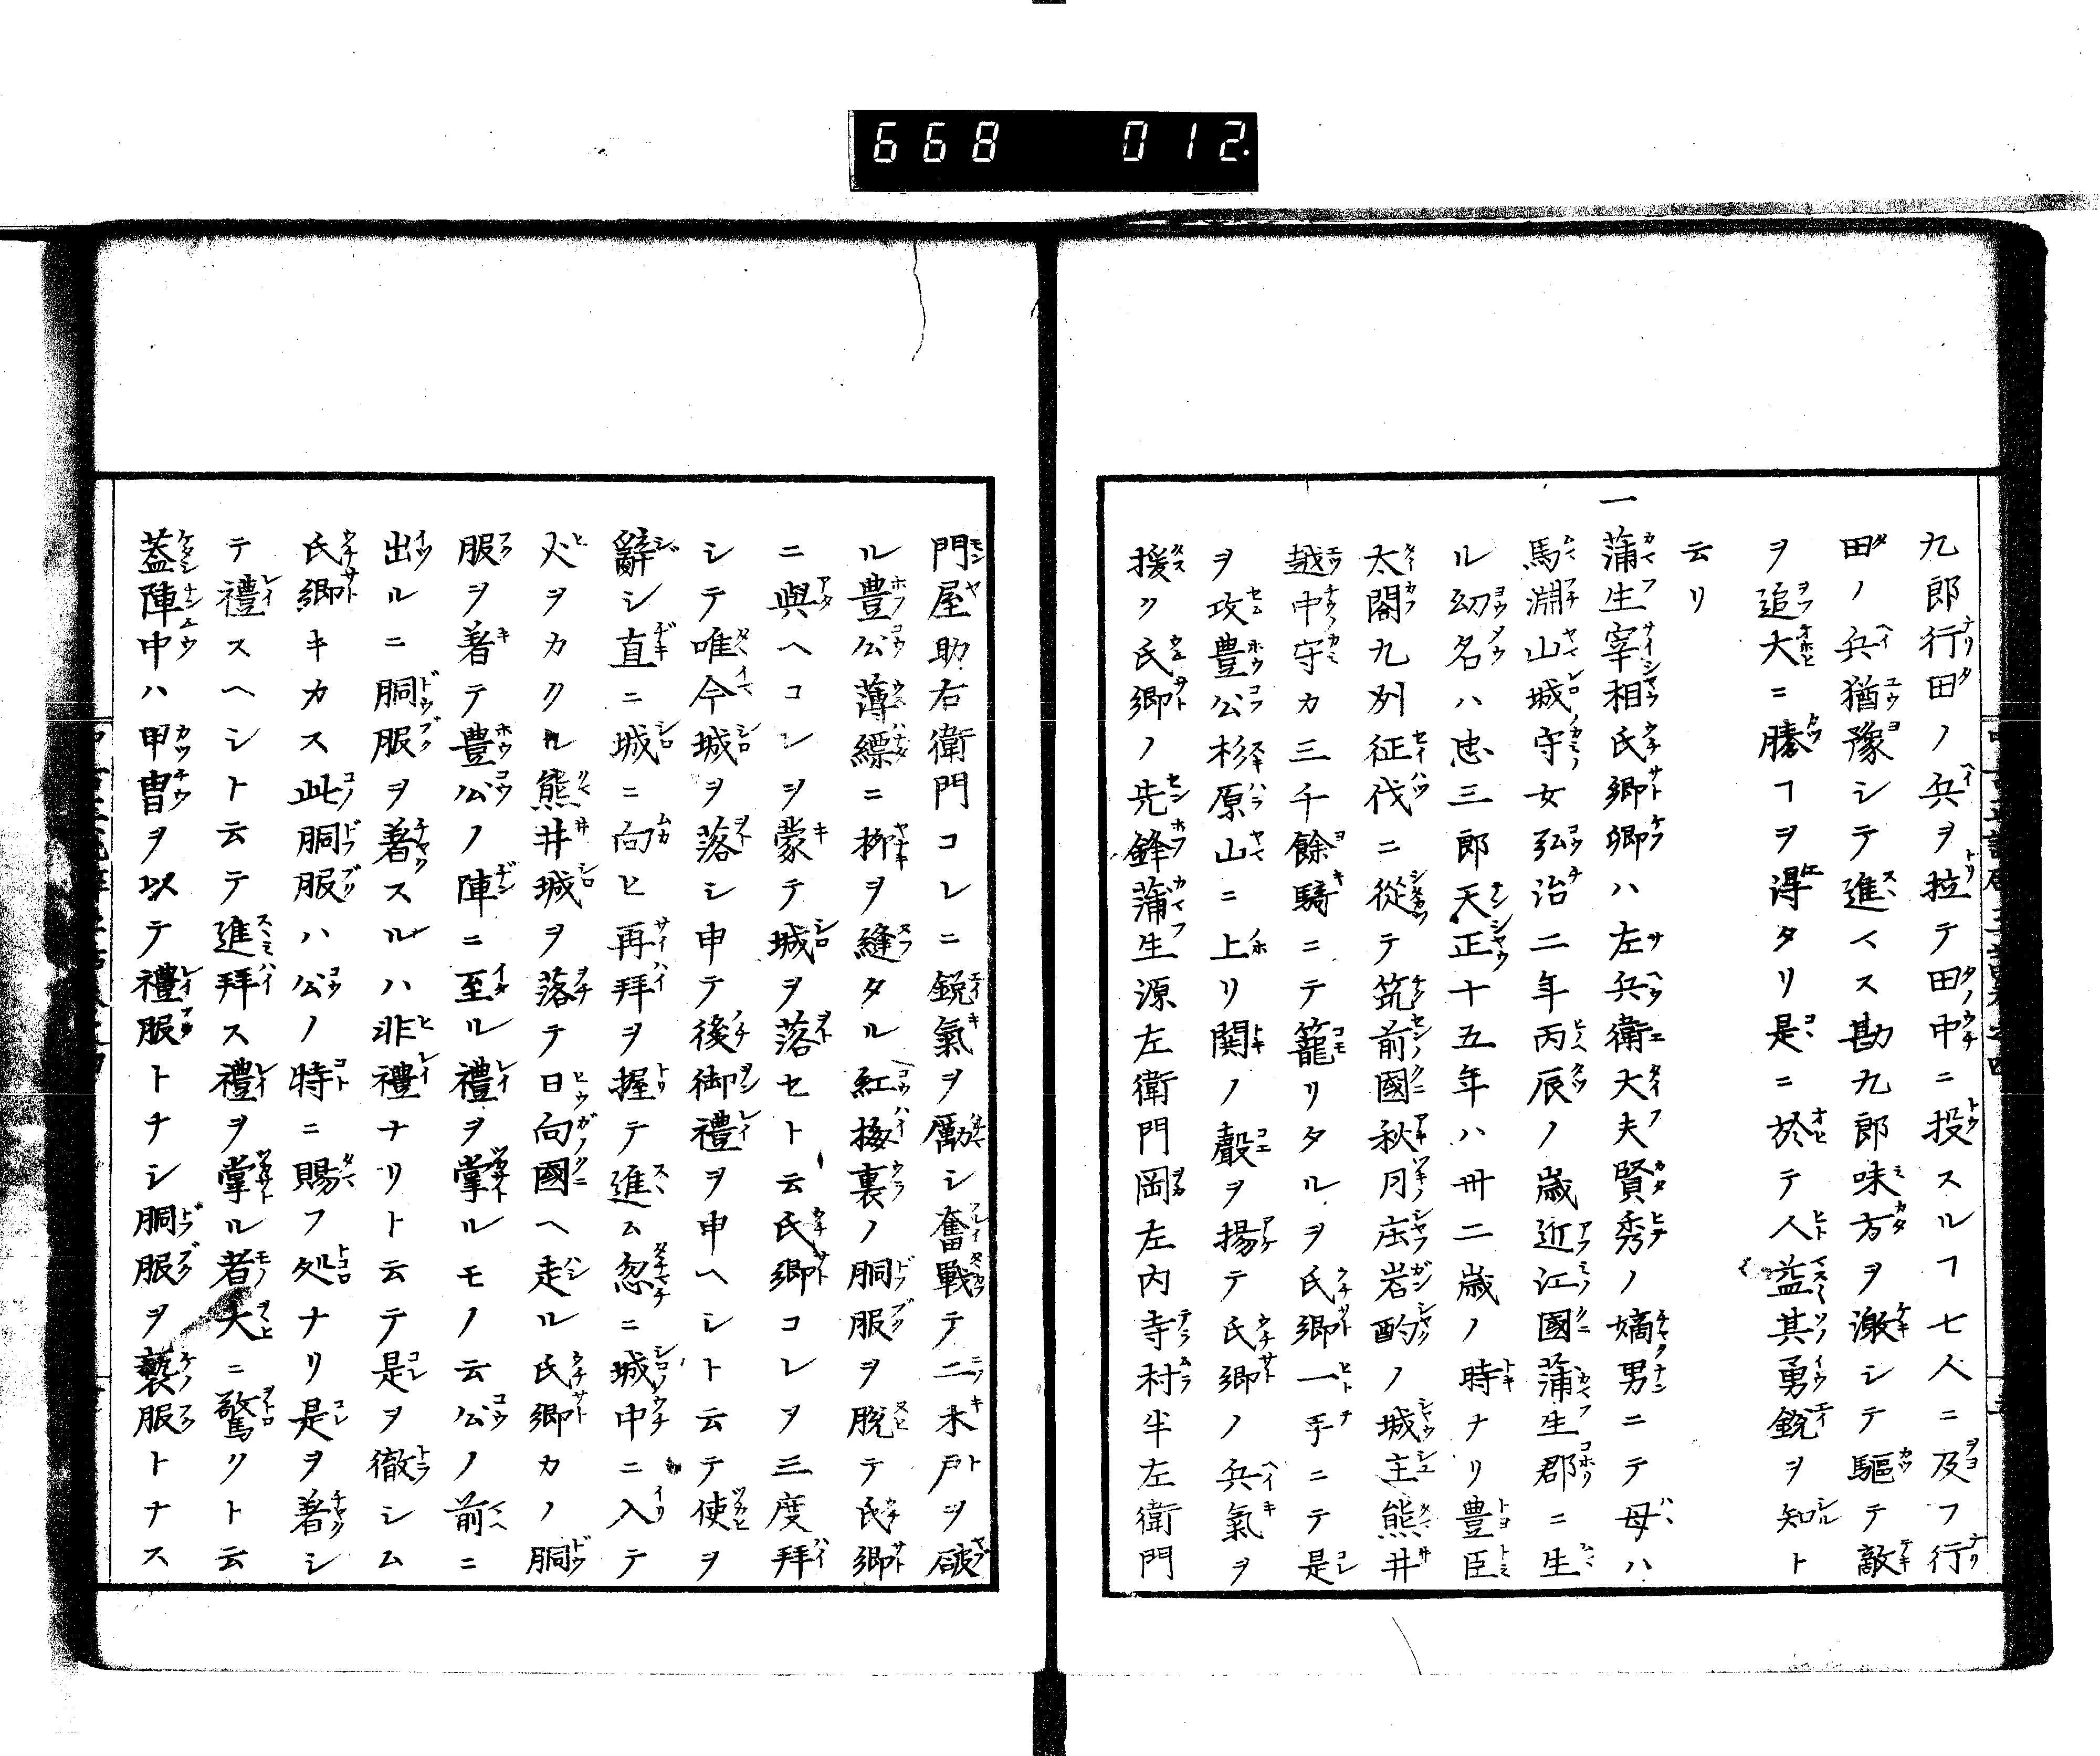 668 012.
九郎行田ノ兵ヲ拉テ田中ニ投スルヿ七人ニ及フ行
田ノ兵猶豫シテ進マス勘九郎味方ヲ激シテ驅テ敵
ヲ追大ニ勝ヿヲ得タリ是ニ於テ人益其勇銳ヲ知ト
云リ
一蒲生宰相氏鄕卿ハ左兵衛大夫賢秀ノ嫡男ニテ母ハ
馬淵山城守女弘治二年丙辰ノ歳近江國蒲生郡ニ生
ル幼名ハ忠三郎天正十五年ハ卅二歳ノ時ナリ豊臣
太閤九列征伐ニ從テ筑前國秋月庄岩酌ノ城主熊井
越中守カ三千餘騎ニテ籠リタルヲ氏鄕一手ニテ是
ヲ攻豊公杉原山ニ上リ鬨ノ聲ヲ揚テ氏鄕ノ兵氣ヲ
援ク氏鄕ノ先鋒蒲生源左衛門岡左内寺村半左衛門
門屋助右衛門コレニ銳氣ヲ勵シ奮戰テ二木戸ヲ破
ル豊公薄縹ニ柳ヲ縫タル紅梅裏ノ胴服ヲ脱テ氏鄕
ニ與ヘコレヲ蒙テ城ヲ落セト云氏鄕コレヲ三度拜
シテ唯今城ヲ落シ申テ後御禮ヲ申ヘシト云テ使ヲ
辭シ直ニ城ニ向ヒ再拜ヲ握テ進ム忽ニ城中ニ入テ
火ヲカクル熊井城ヲ落テ日向國ヘ走ル氏鄕カノ胴
服ヲ着テ豊公ノ陣ニ至ル禮ヲ掌ルモノ云公ノ前ニ
出ルニ胴服ヲ着スルハ非禮ナリト云テ是ヲ徹シム
氏鄕キカス此胴服ハ公ノ特ニ賜フ処ナリ是ヲ着シ
テ禮スヘシト云テ進拜ス禮ヲ掌ル者大ニ驚リト云
蓋陣中ハ甲冑ヲ以テ禮服トナシ胴服ヲ褻服トナス